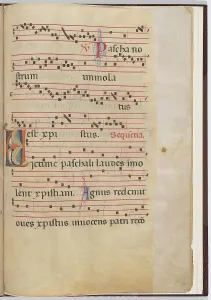 V Pascha no
strum immola
tus
est xpi stus. Sequentia.
Victime paschali laudes imo
lent xpistiani. Agnus redemit
oues xpistus innocens patri reco